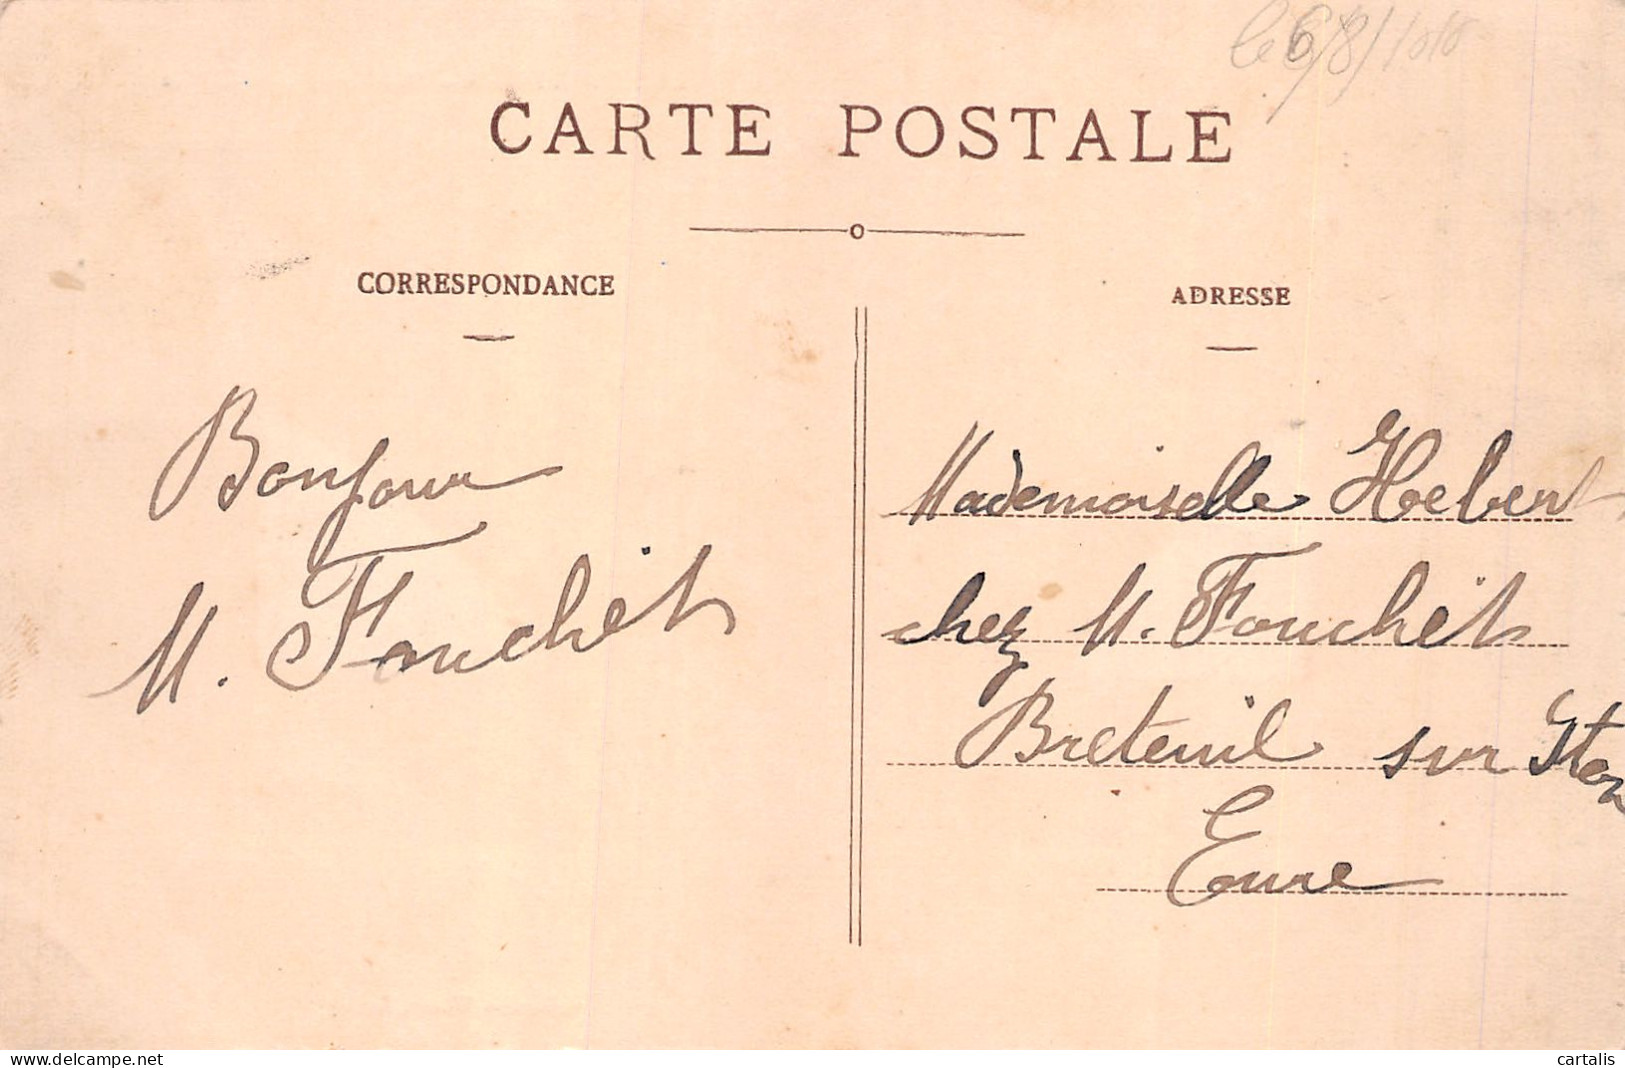 le 6/8/1910
CARTE POSTALE
CORRESPONDANCE
ADRESSE
Bonjour
M. Fouchet
Mademoiselle Hebert
chez M. Fouchet
Breteuil sur Iton
Eure
www.delcampe.net
cartalis